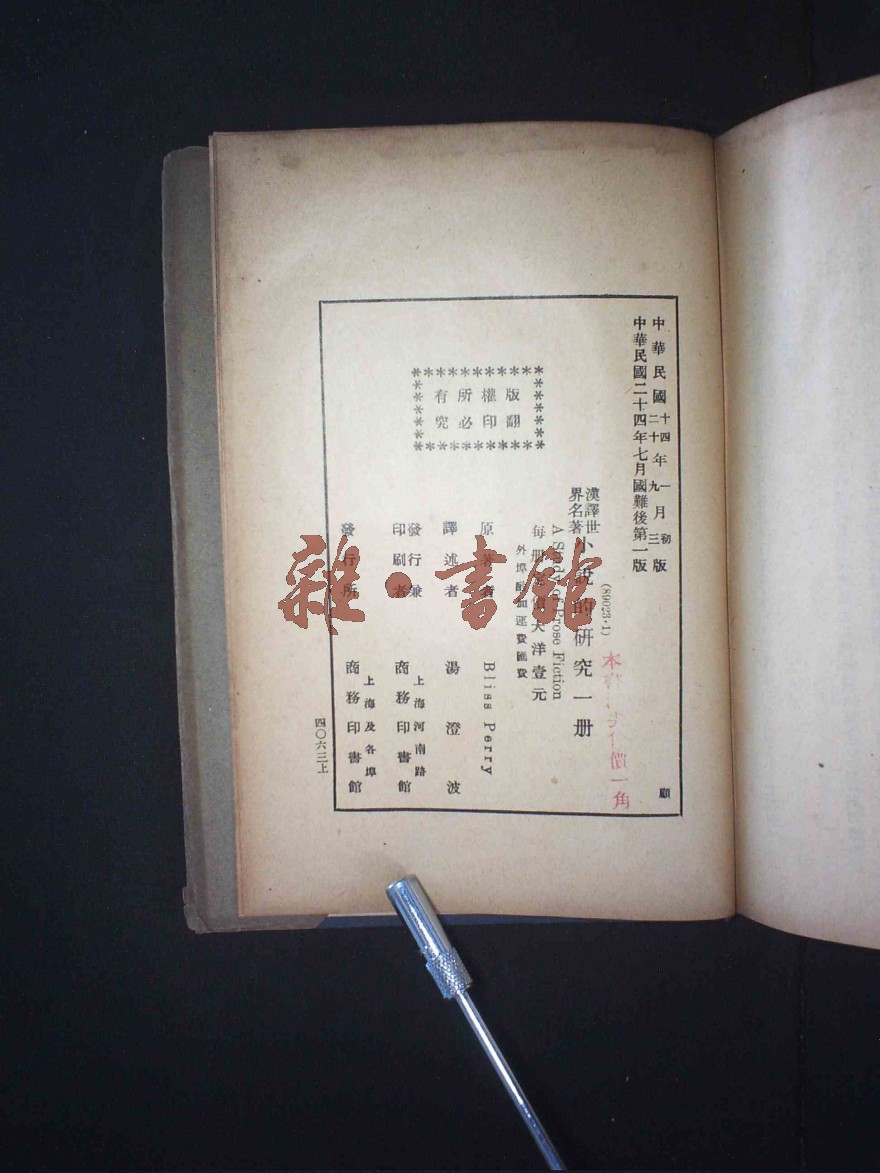 中華民國十四年一月初版
中華民國二十年九月三版
中華民國二十四年七月國難後第一版
顧
(89023·1)
漢譯世界名著
小說的研究一册
A Study of Prose Fiction
每册定價大洋壹元
外埠酌加運費匯費
版權所有
翻印必究
原著者 Bliss Perry
譯述者 湯澄波
發行兼印刷者 上海河南路商務印書館
發行所 上海及各埠商務印書館
四〇六三上
價一角
雜·書館